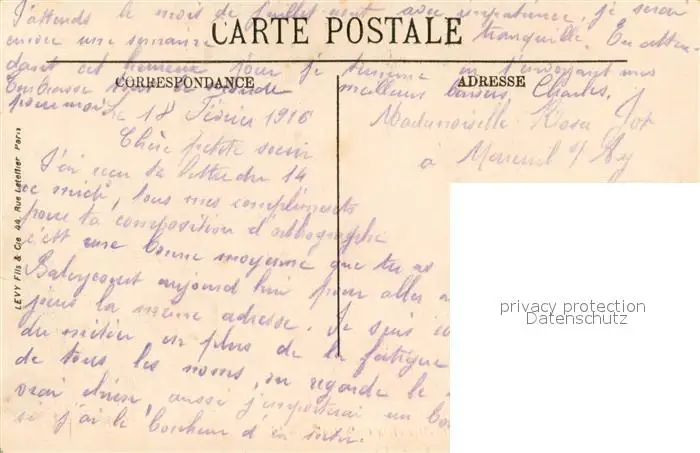 J'attends le mois de Juillet avec impatience, je serai
encore une semaine tranquille. En atten-
CARTE POSTALE
dant cet heureux jour je termine en t'envoyant mes
CORRESPONDANCE
ADRESSE
meilleurs baisers Charles.
Embrasse tout le monde
pour moi
Le 18 Février 1916
Mademoiselle Rosa
à Mareuil s/ Ay
Chère petite sœur
J'ai reçu ta lettre du 14
ce midi, tous mes compliments
pour ta composition d'orthographe
c'est une bonne moyenne que tu as
Baleycourt aujourd'hui pour aller
jours la même adresse. Je suis
du métier en plus de la fatigue
de tous les noms, on regarde le
vrai chien, aussi j'emporterai un
si j'ai le bonheur d'en sortir.
LEVY Fils & Cie 44, Rue Letellier Paris
privacy protection
Datenschutz